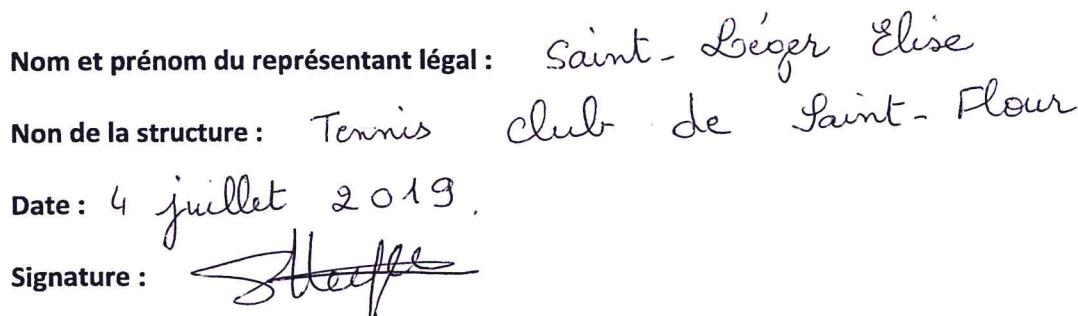 Nom et prénom du représentant légal : Saint-Léger Elise
Non de la structure : Tennis club de Saint-Flour
Date : 4 juillet 2019.
Signature :